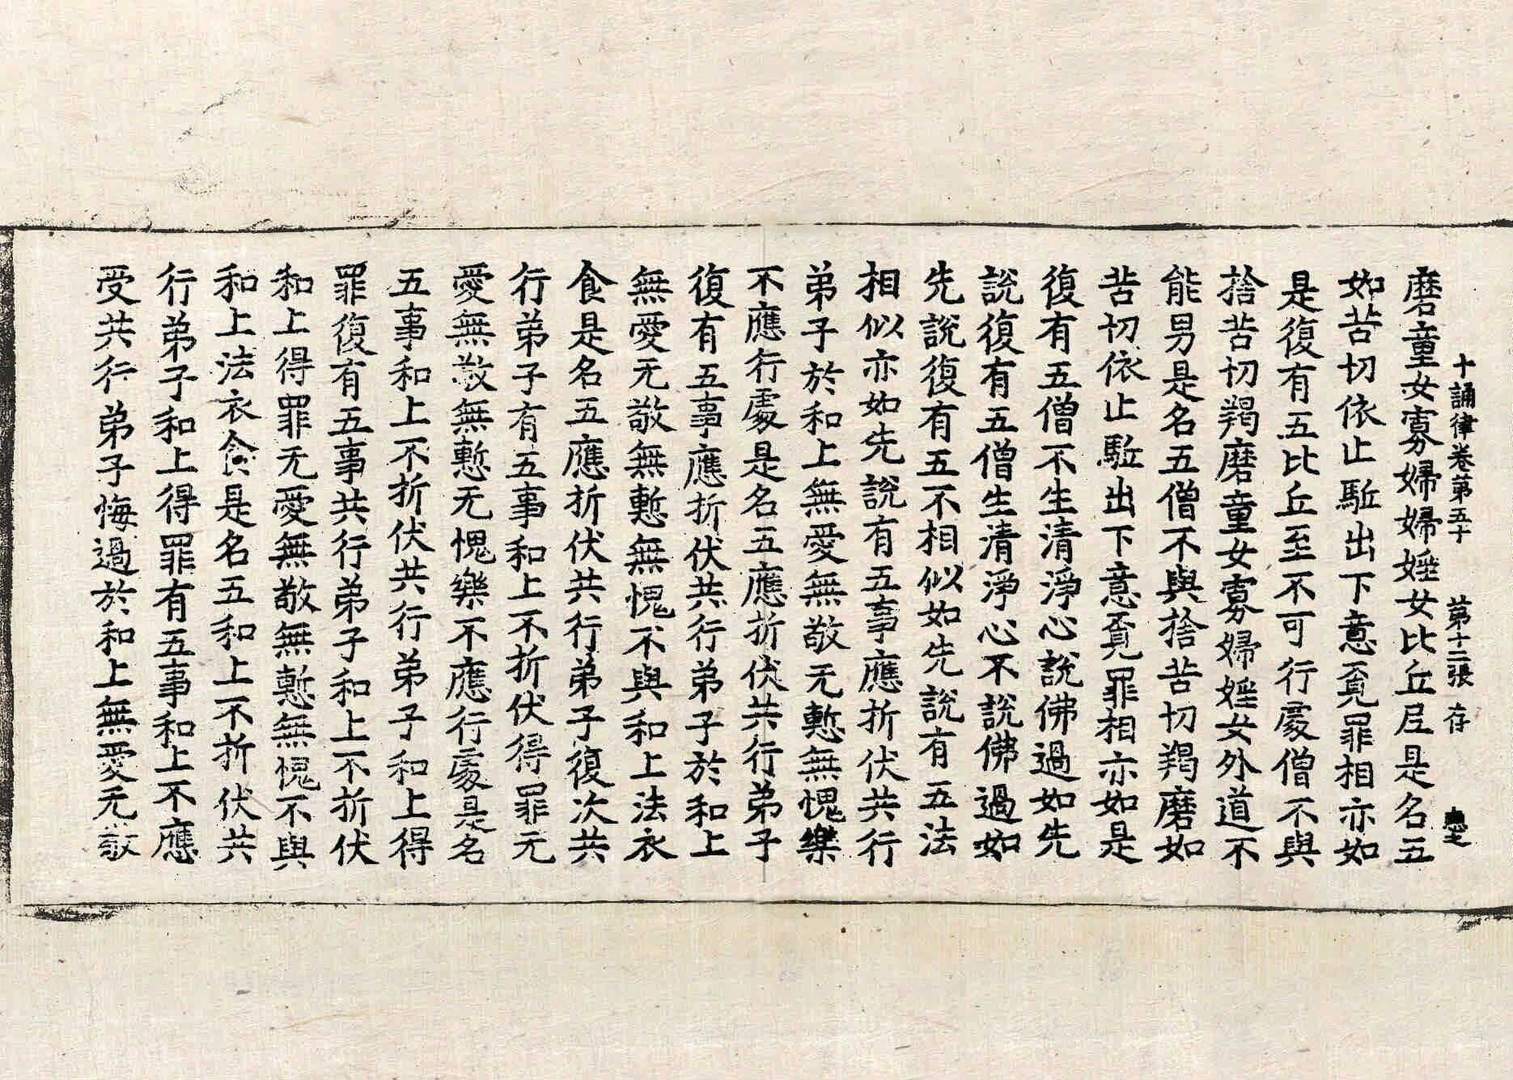 十誦律卷第五十 第十二張 存
磨童女寡婦婦婬女比丘尼是名五
如苦切依止駈出下意覔罪相亦如
是復有五比丘至不可行處僧不與
捨苦切羯磨童女寡婦婬女外道不
能男是名五僧不與捨苦切羯磨如
苦切依止駈出下意覔罪相亦如是
復有五僧不生清淨心說佛過如先
說復有五僧生清淨心不說佛過如
先說復有五不相似如先說有五法
相似亦如先說有五事應折伏共行
弟子於和上無愛無敬无慙無愧樂
不應行處是名五應折伏共行弟子
復有五事應折伏共行弟子於和上
無愛无敬無慙無愧不與和上法衣
食是名五應折伏共行弟子復次共
行弟子有五事和上不折伏得罪无
愛無敬無慙无愧樂不應行處是名
五事和上不折伏共行弟子和上得
罪復有五事共行弟子和上不折伏
和上得罪无愛無敬無慙無愧不與
和上法衣食是名五和上不折伏共
行弟子和上得罪有五事和上不應
受共行弟子悔過於和上無愛无敬